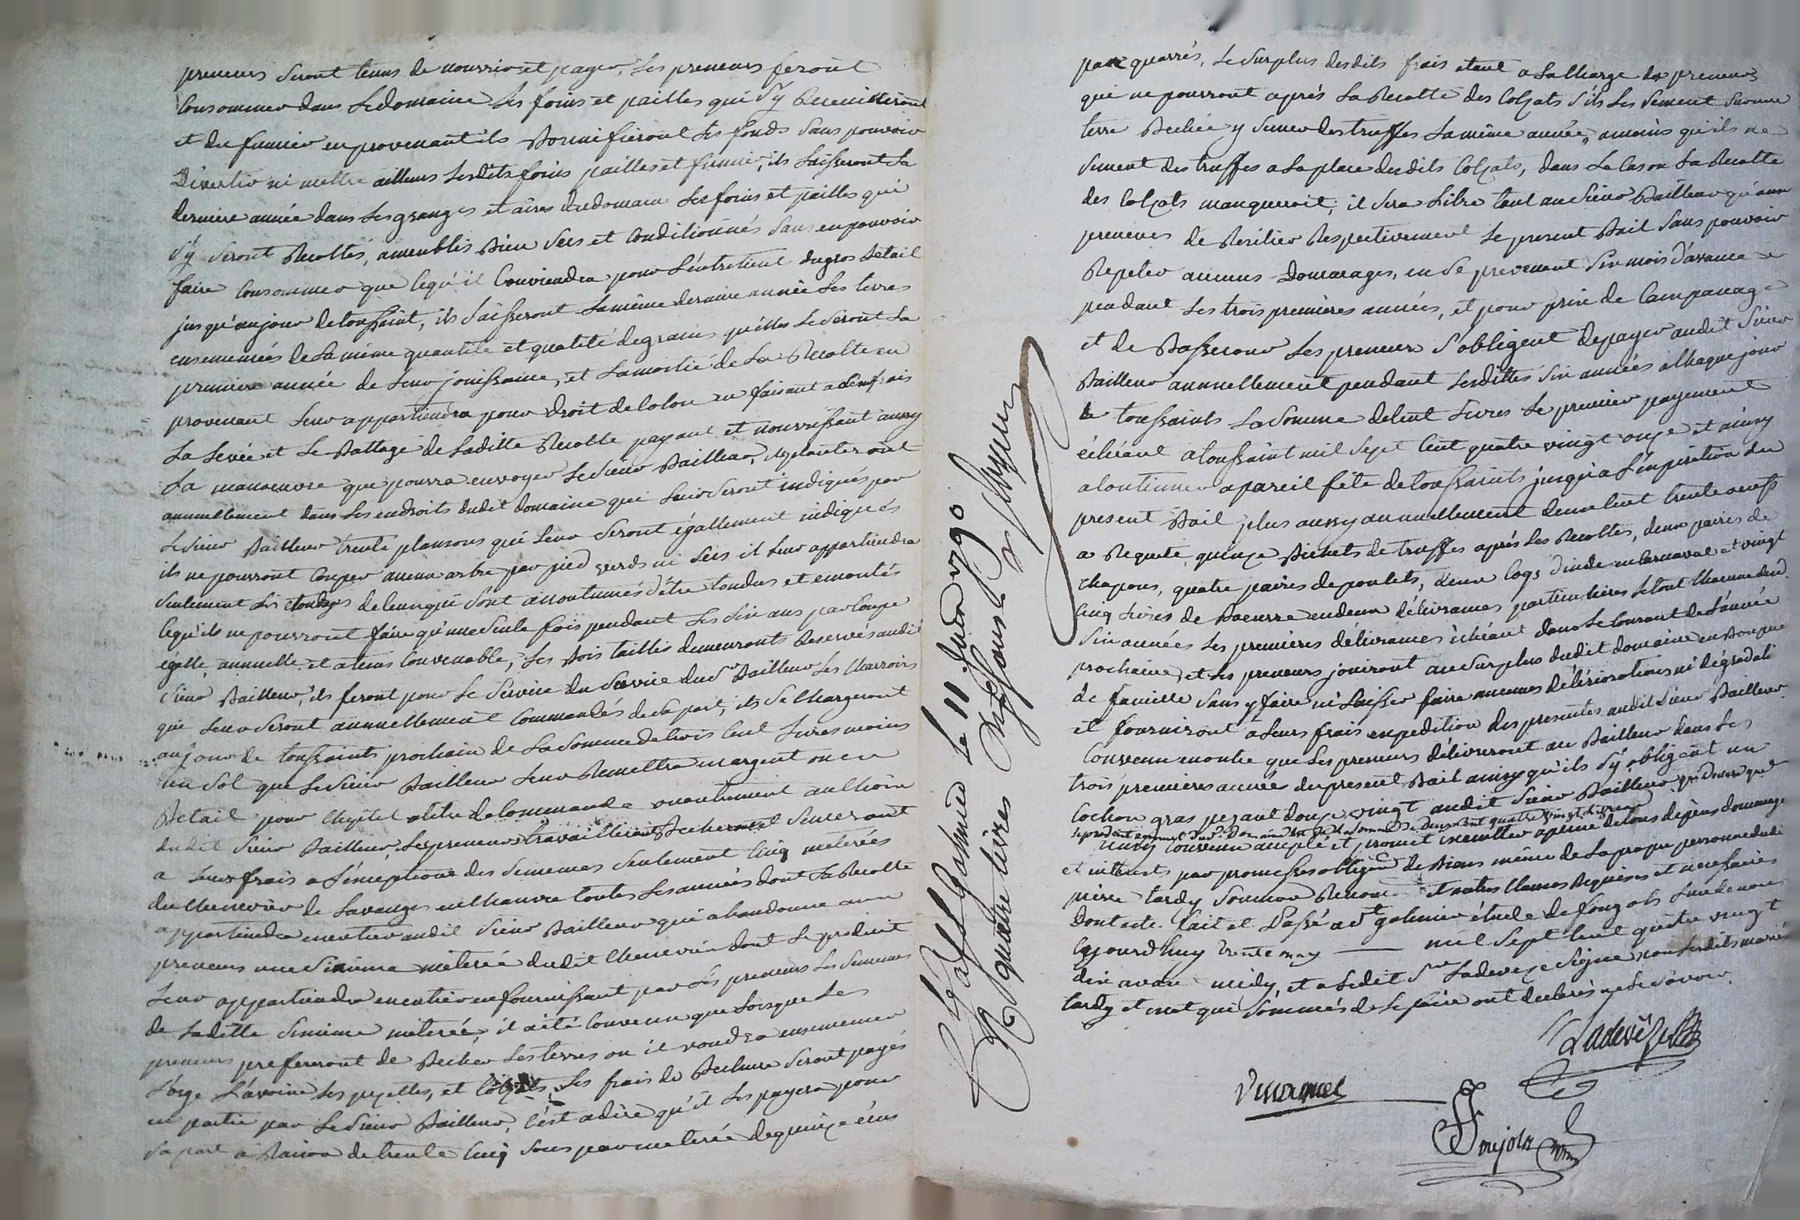 preneurs seront tenus de nourrir et payer, les preneurs feront
Consommer dans le domaine les foins et pailles qui s'y Recueilleront
et du fumier en provenant ils Bonnifieront les fonds sans pouvoir
Divertir ni mettre ailleurs lesdits foins pailles et fumier, ils laisseront la
derniere année dans les granges et aires dudomaine les foins et pailles qui
s'y seront Recoltés, ameublis Bien secs et Conditionnés sans en pouvoir
faire Consommer que ce qu'il Conviendra pour l'entretient dugros Betail
jusqu'aujour de toussaint, ils laisseront la même derniere année les terres
ensemencées de la même quantité et qualité de grains qu'elles le seront la
premiere année de leur jouissance, et la moitié de la Recolte en
provenant leur appartiendra pour droit de Colon en faisant a demi frais
la levée et le Battage de laditte Recolte payant et nourrissant aussy
la manoeuvre que pourra envoyer le sieur Bailleur, ils planteront
annuellement dans les endroits dudit domaine qui leur seront indiqués par
le sieur Bailleur trente plansons qui leur seront égallement indiqués
ils ne pourront Couper aucun arbre par pied verds ni secs il leur appartiendra
seulement les élondages de ceux qui sont accoutumés d'être tondus et émontés
ce qu'ils ne pourront faire qu'une seule fois pendant les six ans par Coupe
égalle, annuelle et a tems Convenable, les Bois taillis demeurants Reservés audit
sieur Bailleur, ils feront pour le service du service dud Sr Bailleur les Charrois
qui leur seront annuellement Commandés de sa part, ils se Chargeront
aujour de toussaints prochain de la somme de trois Cent livres moins
un sol que le sieur Bailleur leur Remettra en argent ou en
Betail pour Cheptel a titre de Commande ou autrement au choix
dudit sieur Bailleur, les preneurs travailleront Becheront semeront
a leurs frais a l'exception des semences seulement Cinq meterées
du Chenevier de lavauzes en Chanvre toutes les années dont la Recolte
appartiendra en entier audit sieur Bailleur qui abandonne aux
preneurs une sixieme meterée dudit Chenevier dont le produit
leur appartiendra en entier en fournissant par les preneurs les semences
de laditte sixieme meterée, il a été Convenu que lorsque les
preneurs prefereront de Becher les terres ou il voudra ensemencer
l'orge l'avoine les pezettes, et Colzats, les frais de Bechure seront payés
en partie par le sieur Bailleur, C'est a dire qu'il les payera pour
sa part a Raison de trente Cinq sous par meterée de quinze cens
pas quarrés, le surplus desdits frais etant a la Charge des preneurs
qui ne pourront après la Recolte des Colzats s'ils les sement sur une
terre Bechée y semer des truffes la même année, a moins qu'ils ne
sement des truffes a la place desdits Colzats, dans le Cas ou la Recolte
des Colzats manqueroit, il sera libre tant au sieur Bailleur qu'aux
preneurs de Resilier Respectivement le present Bail sans pouvoir
Repeter aucuns Dommages, en se prevenant six mois d'avance
pendant les trois premieres années, et pour prix de Campanage
et de Bassecour les preneurs s'obligent de payer audit sieur
Bailleur annuellement pendant lesdittes six années a Chaque jour
de toussaints la somme de Cent livres le premier payement
échéant a toussaint mil sept Cent quatre vingt onze et ainsy
a Continuer a pareil fête de toussaints jusqu'a l'expiration du
present Bail, plus aussy annuellement deux Cent trente oeufs
a Requete, quinze Bichets de truffes après les Recoltes, deux paires de
chapons, quatre paires de poulets, deux Coqs d'inde en Carnaval et vingt
Cinq livres de Baeurre en deux délivrances particulieres le tout Chacune desd.
six années les premieres délivrances échéant dans le Courant de l'année
prochaine, et les preneurs jouiront au surplus dudit domaine en Bon pere
de famille sans y faire ni laisser faire aucunes déteriorations ni dégradati
et fourniront a leurs frais expedition des presentes audit sieur Bailleur
Convenu en outre que les preneurs délivreront au Bailleur dans les
trois premieres années du present Bail ainsy qu'ils s'y obligent un
Cochon gras pezant douze vingt audit sieur Bailleur, qui déclare que
le produit annuel dud. Domaine est de la somme de deux cent quatre vingt dix livres
ainsy Convenu accepté et promit executer a peine de tous dépens domages
et interests par promesses obligōn de Biens même de la propre personne dudit
pierre tardy soumōn Renonc. et autres Clauses Requises et necessaires
Dont acte. fait et Passé a St galmier étude de Soujols l'un de nous
Cejourd'huy trente may — mil sept Cent quatre vingt
dix avant midy, et a ledit Sr Ladeveze signé, non lesdits mariés
tardy et enet qui sommés de le faire ont declarés ne le savoir.
Ladevèze
Vincennet
Soujols
Cgal St Galmier le 11 Juin 1790
R quatre livres Dix sous